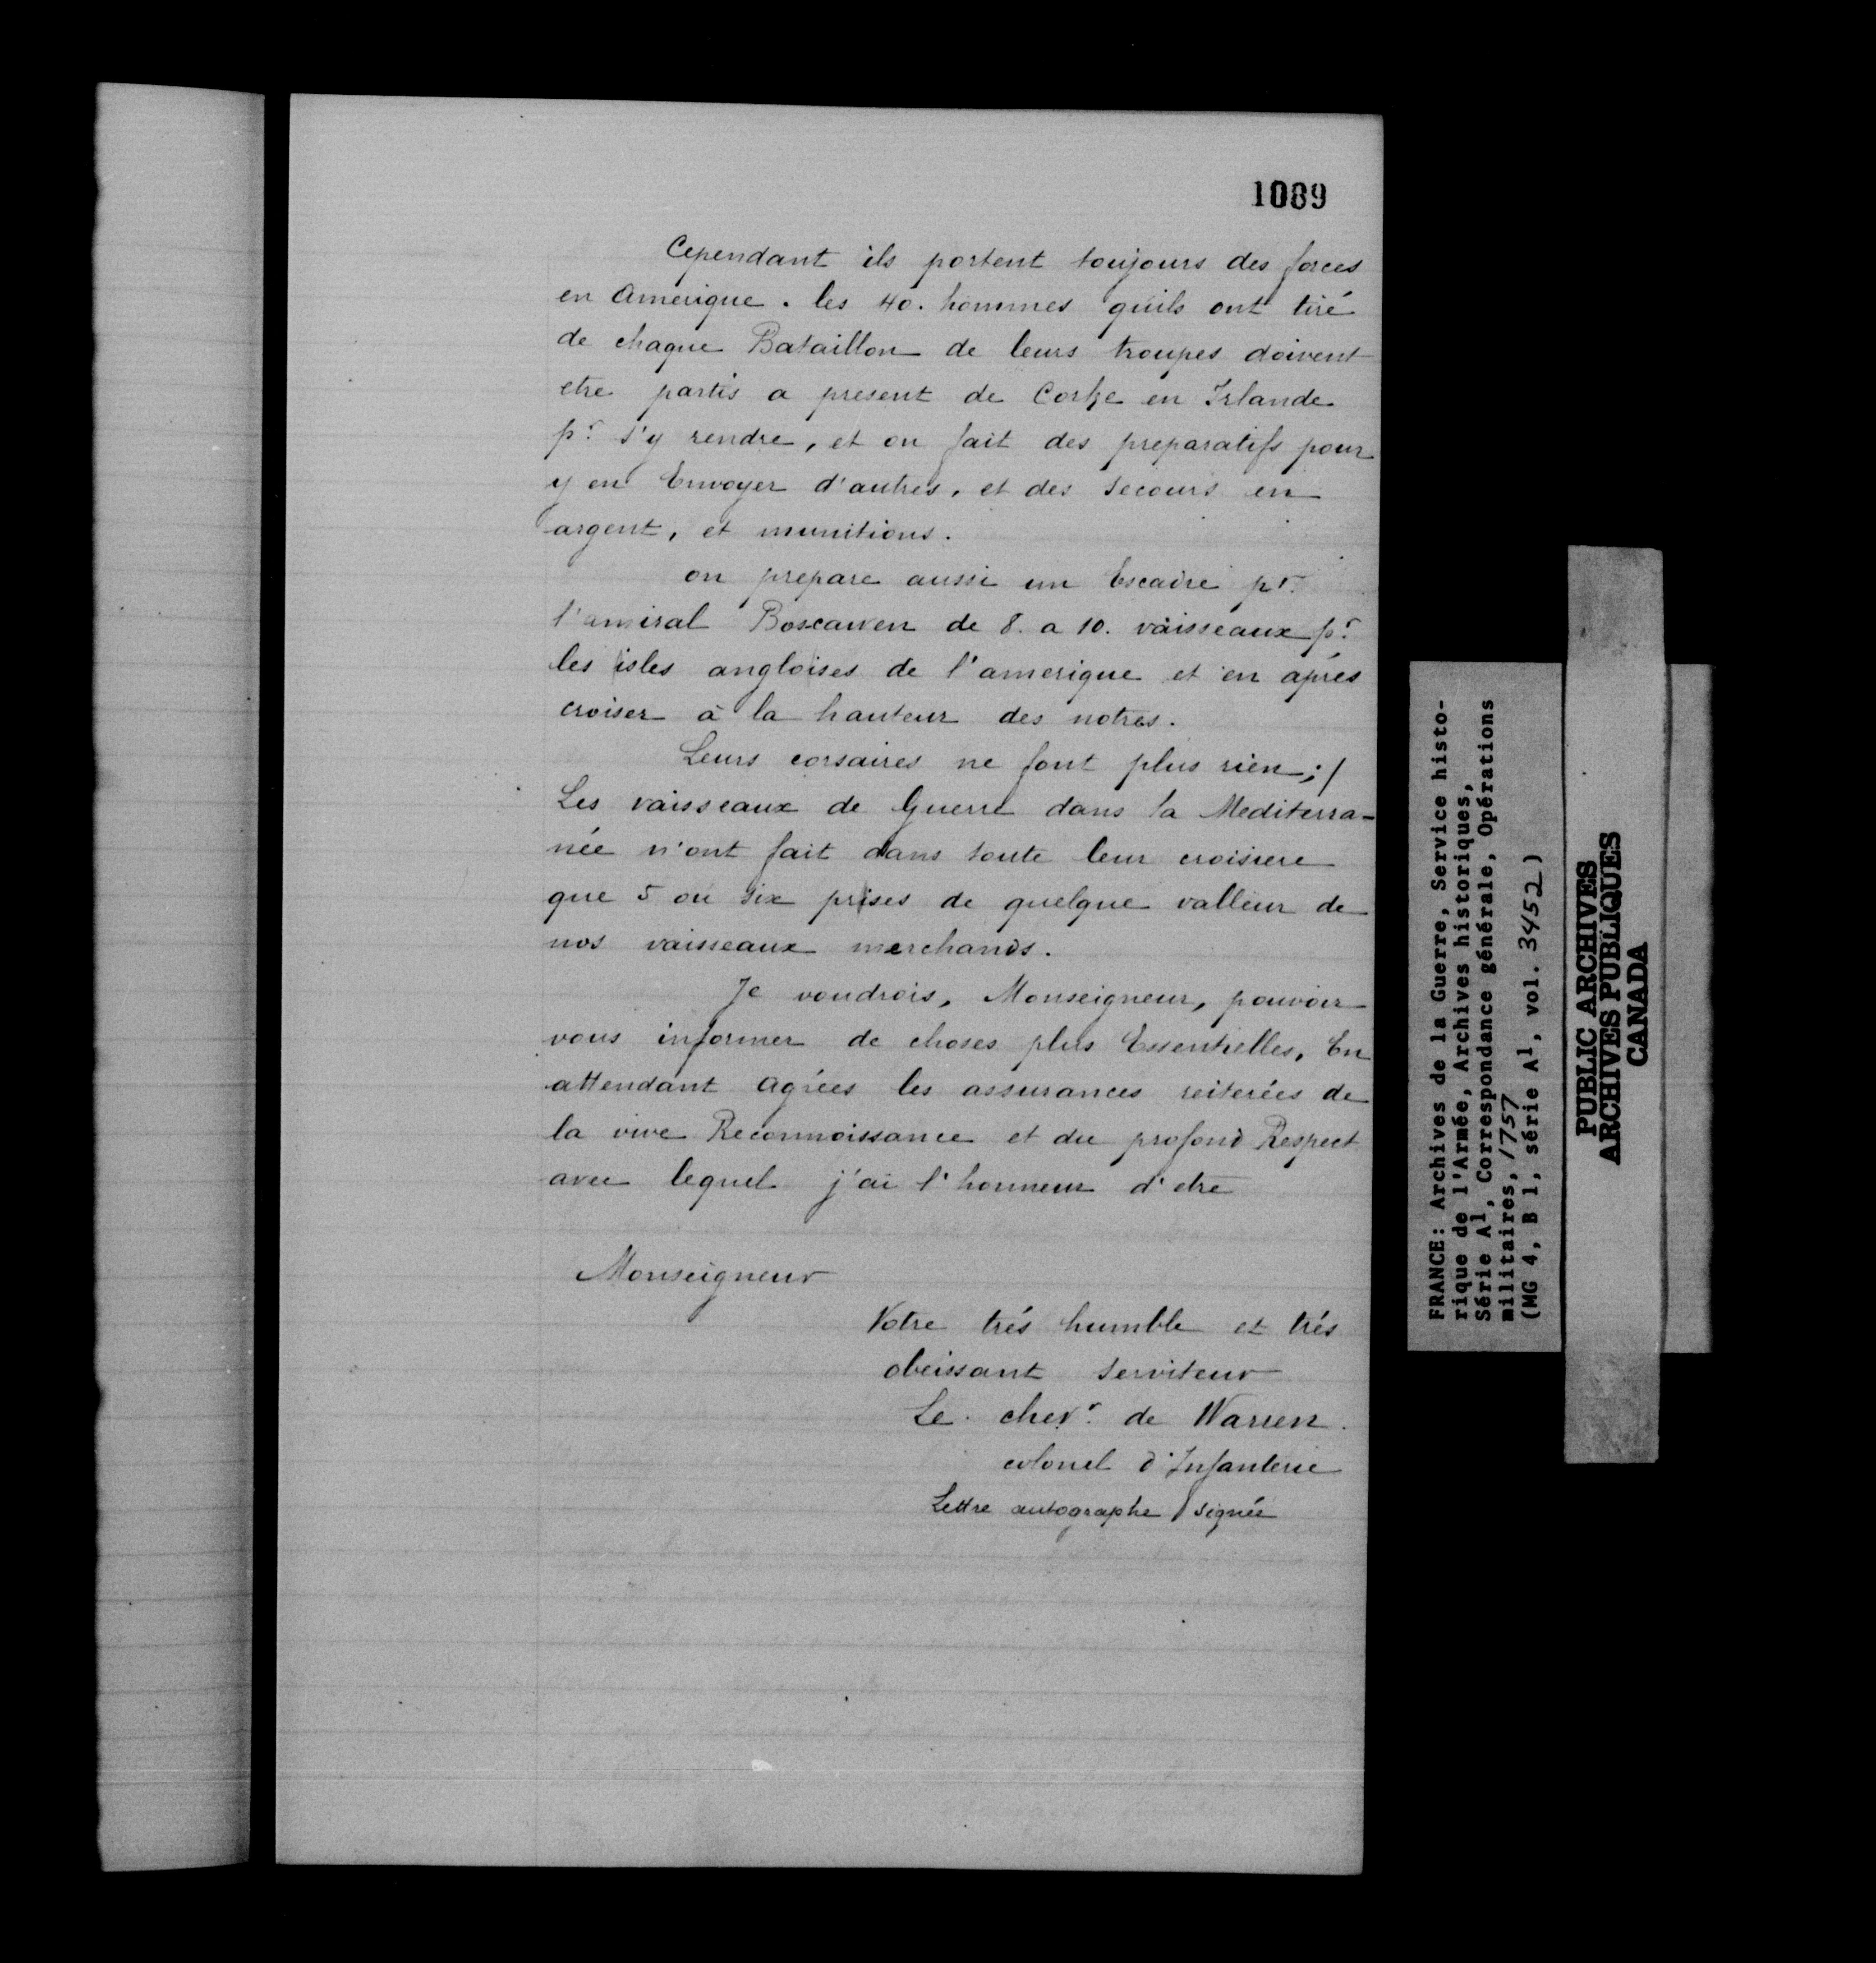 1089
Cependant ils portent toujours des forces
en Amerique. les 40. hommes qu'ils ont tiré
de chaque Bataillon de leurs troupes doivent
etre partis a present de Corke en Irlande
pr. s'y rendre, et on fait des preparatifs pour
y en Envoyer d'autres, et des secours en
argent, et munitions.
on prepare aussi un Escadre pr.
l'amiral Boscawen de 8. a 10. vaisseaux pr.
les isles angloises de l'amerique et en aprés
croiser à la hauteur des notres.
Leurs corsaires ne font plus rien;/
Les vaisseaux de Guerre dans la Mediterra-
née n'ont fait dans toute leur croisiere
que 5 ou six prises de quelque valleur de
nos vaisseaux merchands.
Je voudrois, Monseigneur, pouvoir
vous informer de choses plus Essentielles, En
attendant agrées les assurances reiterées de
la vive Reconnoissance et du profond Respect
avec lequel j'ai l'honneur d'etre
Monseigneur
Votre trés humble et trés
obeissant serviteur
Le chevr. de Warren.
colonel d'Infanterie
Lettre autographe signée
FRANCE: Archives de la Guerre, Service histo-
rique de l'Armée, Archives historiques,
Série A1, Correspondance générale, Opérations
militaires, 1757
(MG 4, B 1, série A1, vol. 3452)
PUBLIC ARCHIVES
ARCHIVES PUBLIQUES
CANADA